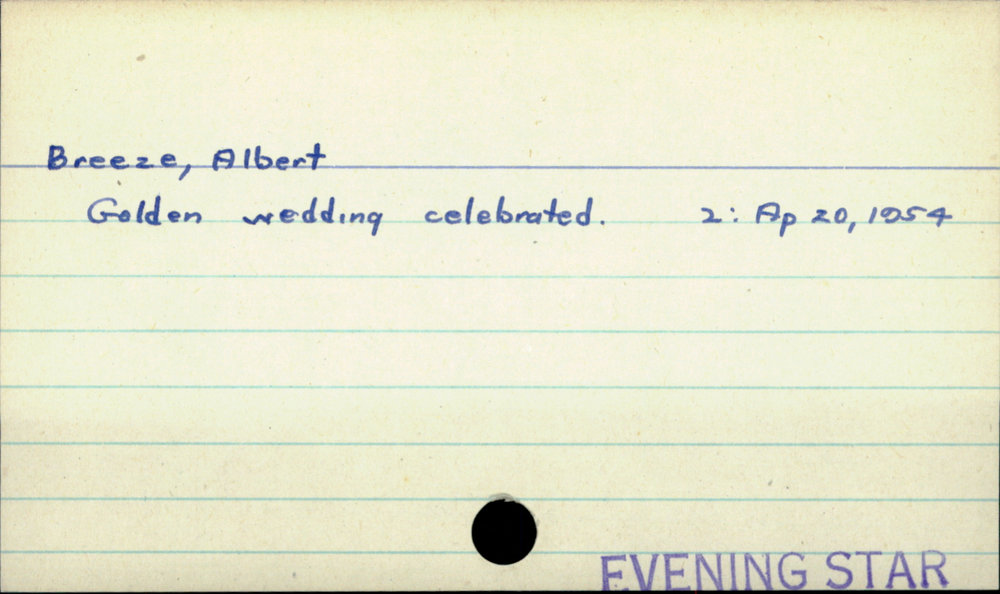 Breeze, Albert
Golden wedding celebrated. 2: Ap 20, 1954
EVENING STAR